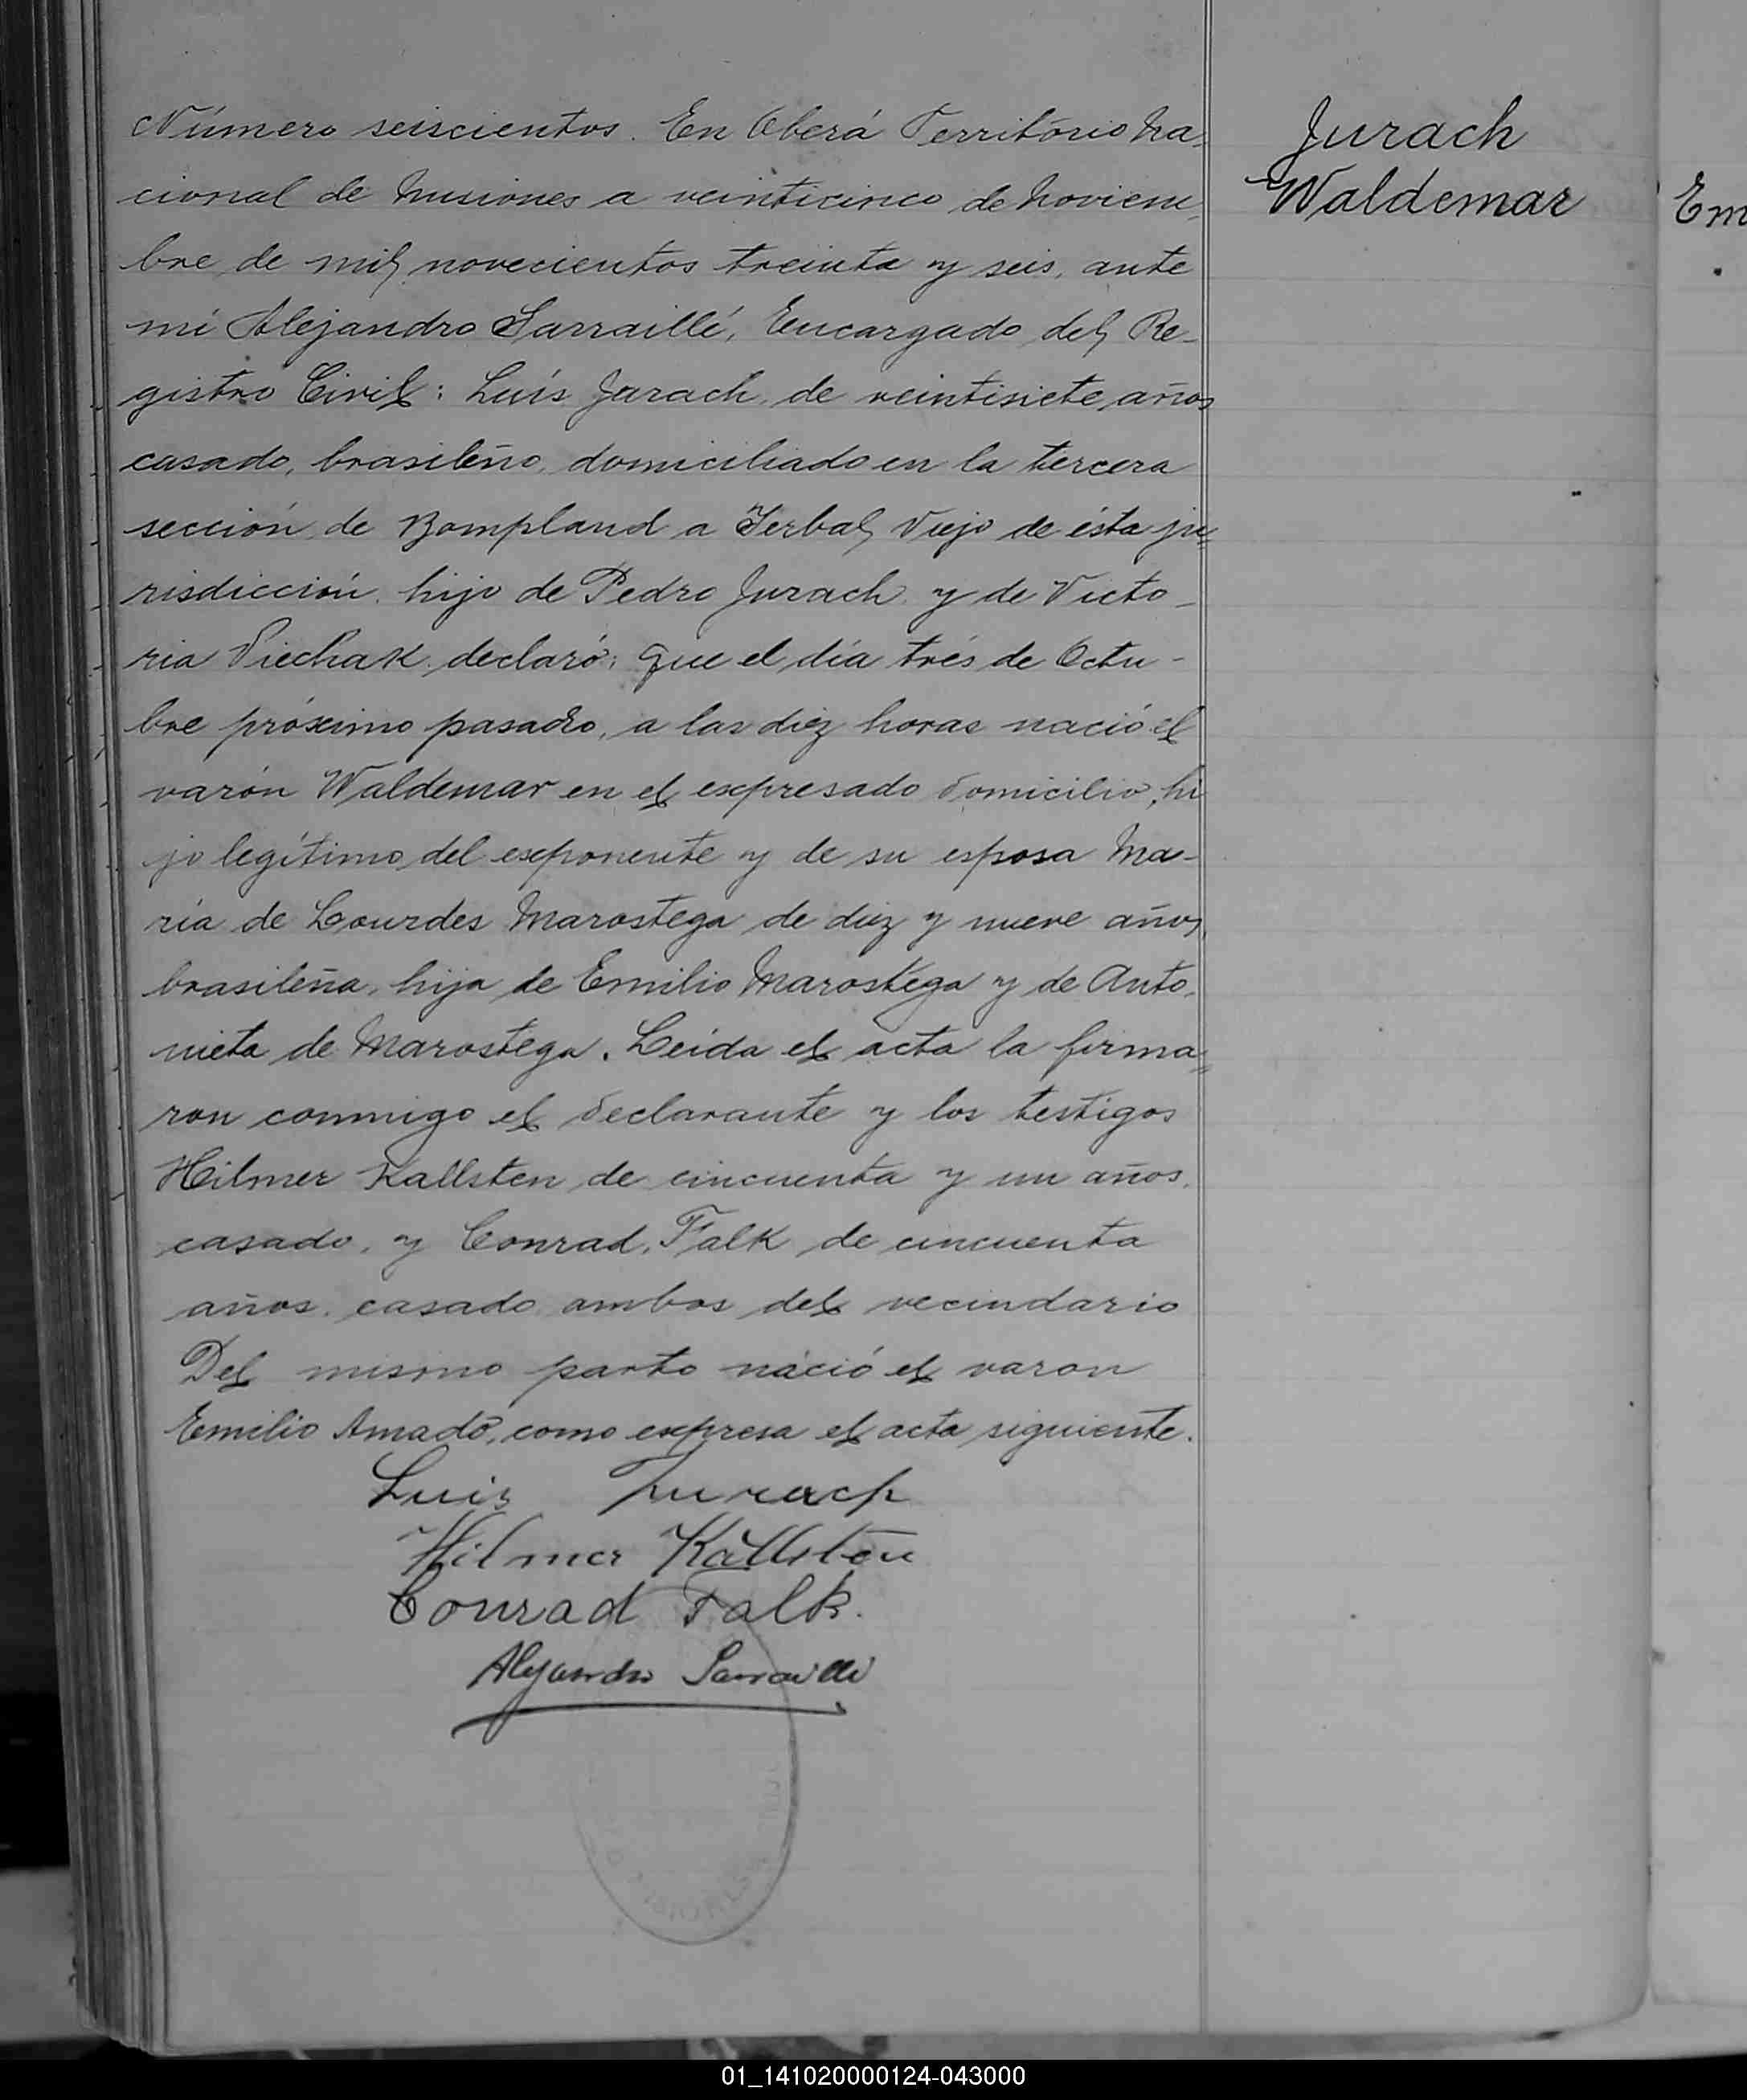 Número seiscientos. En Oberá Território Na-
cional de Misiones a veinticinco de Noviem-
bre de mil novecientos treinta y seis, ante
mi Alejandro Sarraillé, Encargado del Re-
gistro Civil: Luís Jurach, de veintisiete años
casado, brasileño, domiciliado en la tercera
sección de Bompland a Yerbal Viejo de ésta ju-
risdicción, hijo de Pedro Jurach y de Victo-
ria Piechak declaró: que el día trés de Octu-
bre próximo pasado, a las diez horas nació el
varón Waldemar en el expresado domicilio, hi
jo legítimo del exponente y de su esposa Ma-
ría de Lourdes Marostega de diez y nueve años,
brasileña, hija de Emilio Marostega y de Anto-
nieta de Marostega. Leída el acta la firma-
ron conmigo el declarante y los testigos
Hilmer Kallsten de cincuenta y un años,
casado, y Conrad Falk de cincuenta
años, casado, ambos del vecindario
Del mismo parto nació el varon
Emilio Amado, como expresa el acta siguiente.
Luis Jurach
Hilmer Kallsten
Conrad Falk.
Alejandro Sarraillé
Jurach
Waldemar
Em
01_141020000124-043000